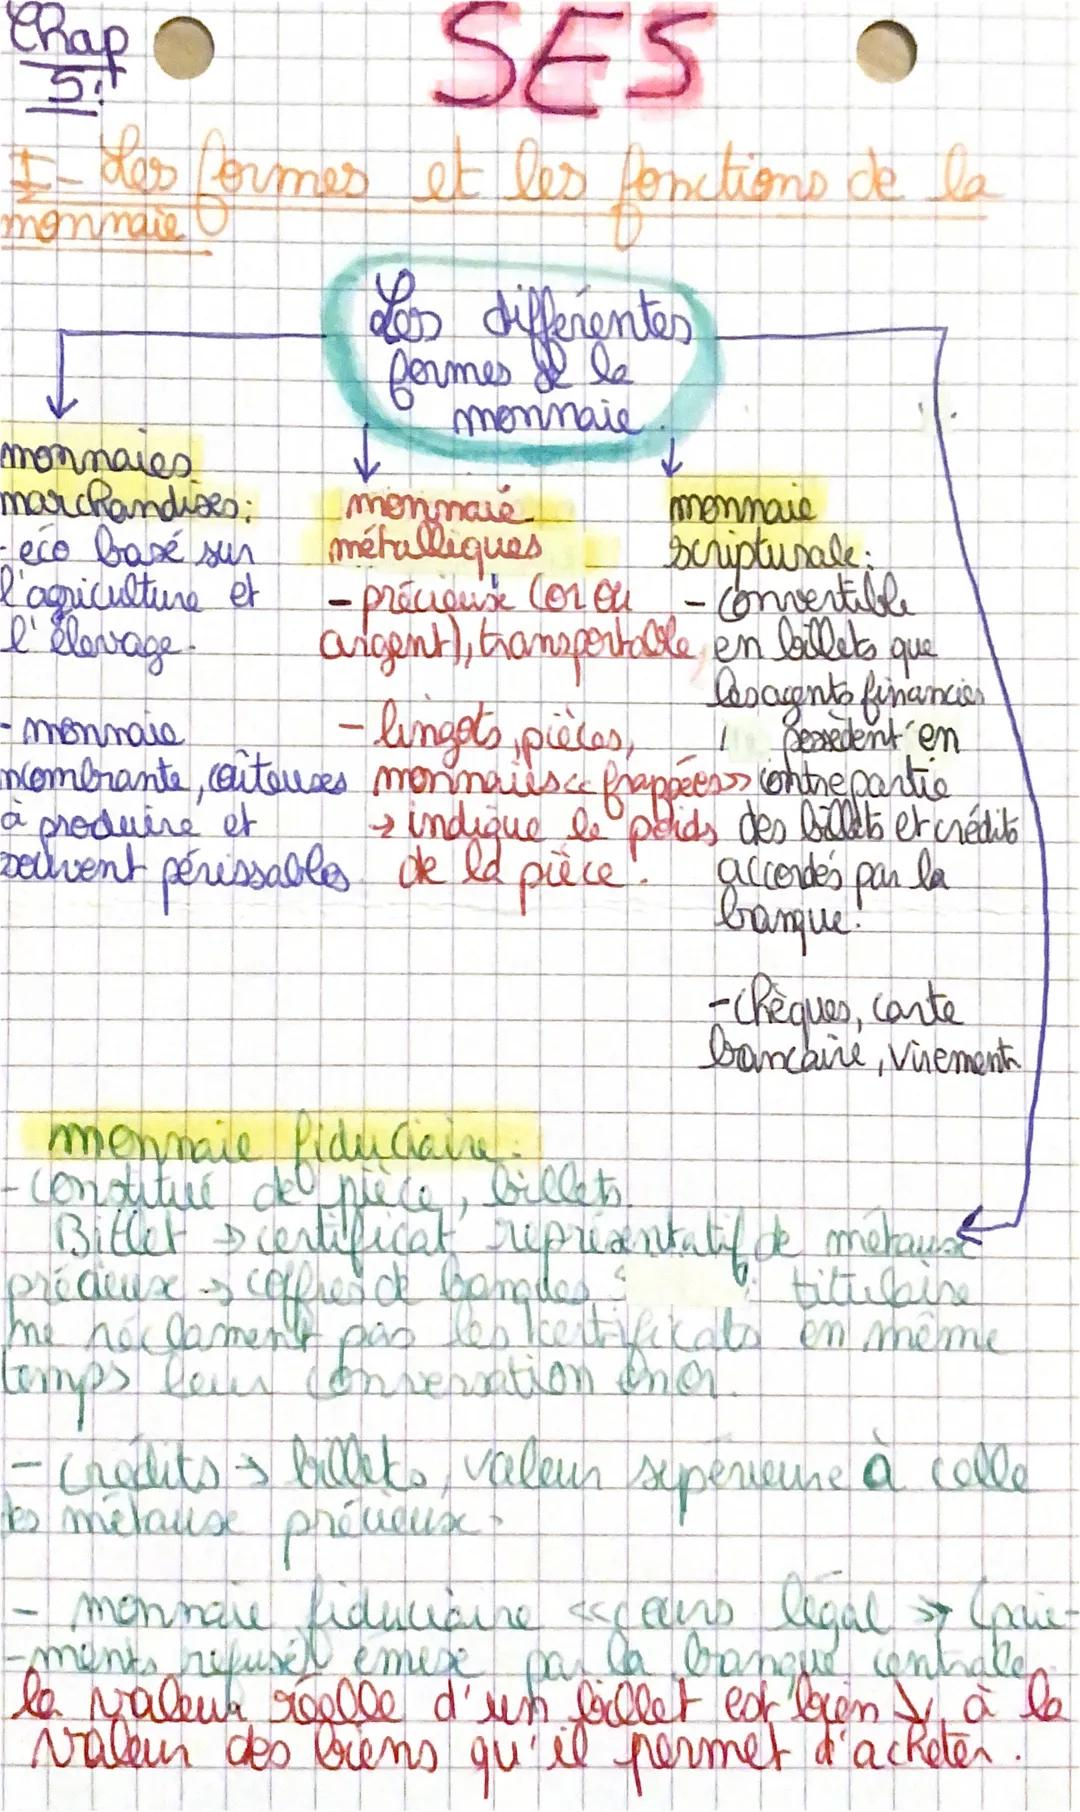 Chap
5:
SES
I - Les formes et les fonctions de la
monnaie
Les différentes
formes de la
monnaie.
monnaies
marchandises:
- éco basé sur
l'agriculture et
l'élevage.
- monnaie
mcombrante, coûteuses
à produire et
souvent périssables
monnaie
métalliques
- précieux (or ou
argent), transportable,
- lingots, pièces,
monnaies « frappées »
→ indique le poids
de la pièce.
monnaie
scripturale:
- convertible
en billets que
les agents financies
possèdent en
contrepartie
des billets et crédits
accordés par la
banque.
- chèques, carte
bancaire, virement
monnaie fiduciaire:
- constitué de pièce, billets.
Billet → certificat représentatif de métaux
précieux → coffres de banques : titulaire
ne réclament pas les certificats en même
temps leur conversation en or.
- crédits → billets, valeur supérieure à celle
des métaux précieux.
- monnaie fiduciaire « cours légal » → (paie-
-ments refusé) émise par la banque centrale
la valeur réelle d'un billet est bien ↘ à la
valeur des biens qu'il permet d'acheter.